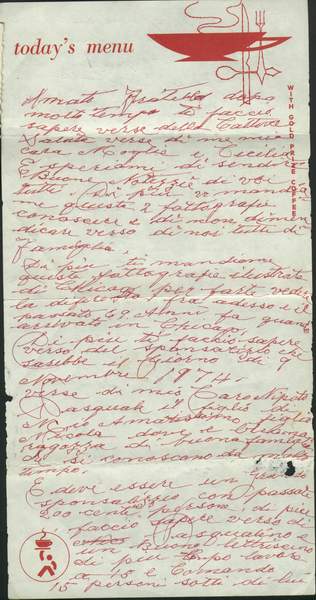 today's menu
WITH GOLD PRIZE COFFEE
Amato Fratello dopo
molto tempo ti faccio
sapere verse della Cattiva
Salute verse di me mia
Cara Moglie e Cecilia
E speriamo di sentire
Buone Notizie di voi
tutti. Di piu vi mando
me questa 2 fattografie
conoscere e di non dimen
dicare verso di noi tutti di
Famiglia.
Di piu ti mandiamo
queste fattografie illustrate
di Chicago per farte vedire
la difrenza fra adesso e il
passato 69 Anni fa quando
arrivato in Chicago.
Di piu ti faccio sapere
verso del sponsalizio che
sarebbe il Giorno di 9
Novembre 1974.
verse di mio Caro Nipote
Pasquale il figlio di
Mio Amatissimo Fratello
Nicola con e Bellina
ragozza di buona famiglia
che si conoscano da molto
tempo.
E deve essere un grande
sponsalizio con passare
200 cento persone, di piu
ti faccio sapere verso di
Pasqualino e
un Buono
di piu tempo lavora
a 15 e Comando
15 persone sotto di lui